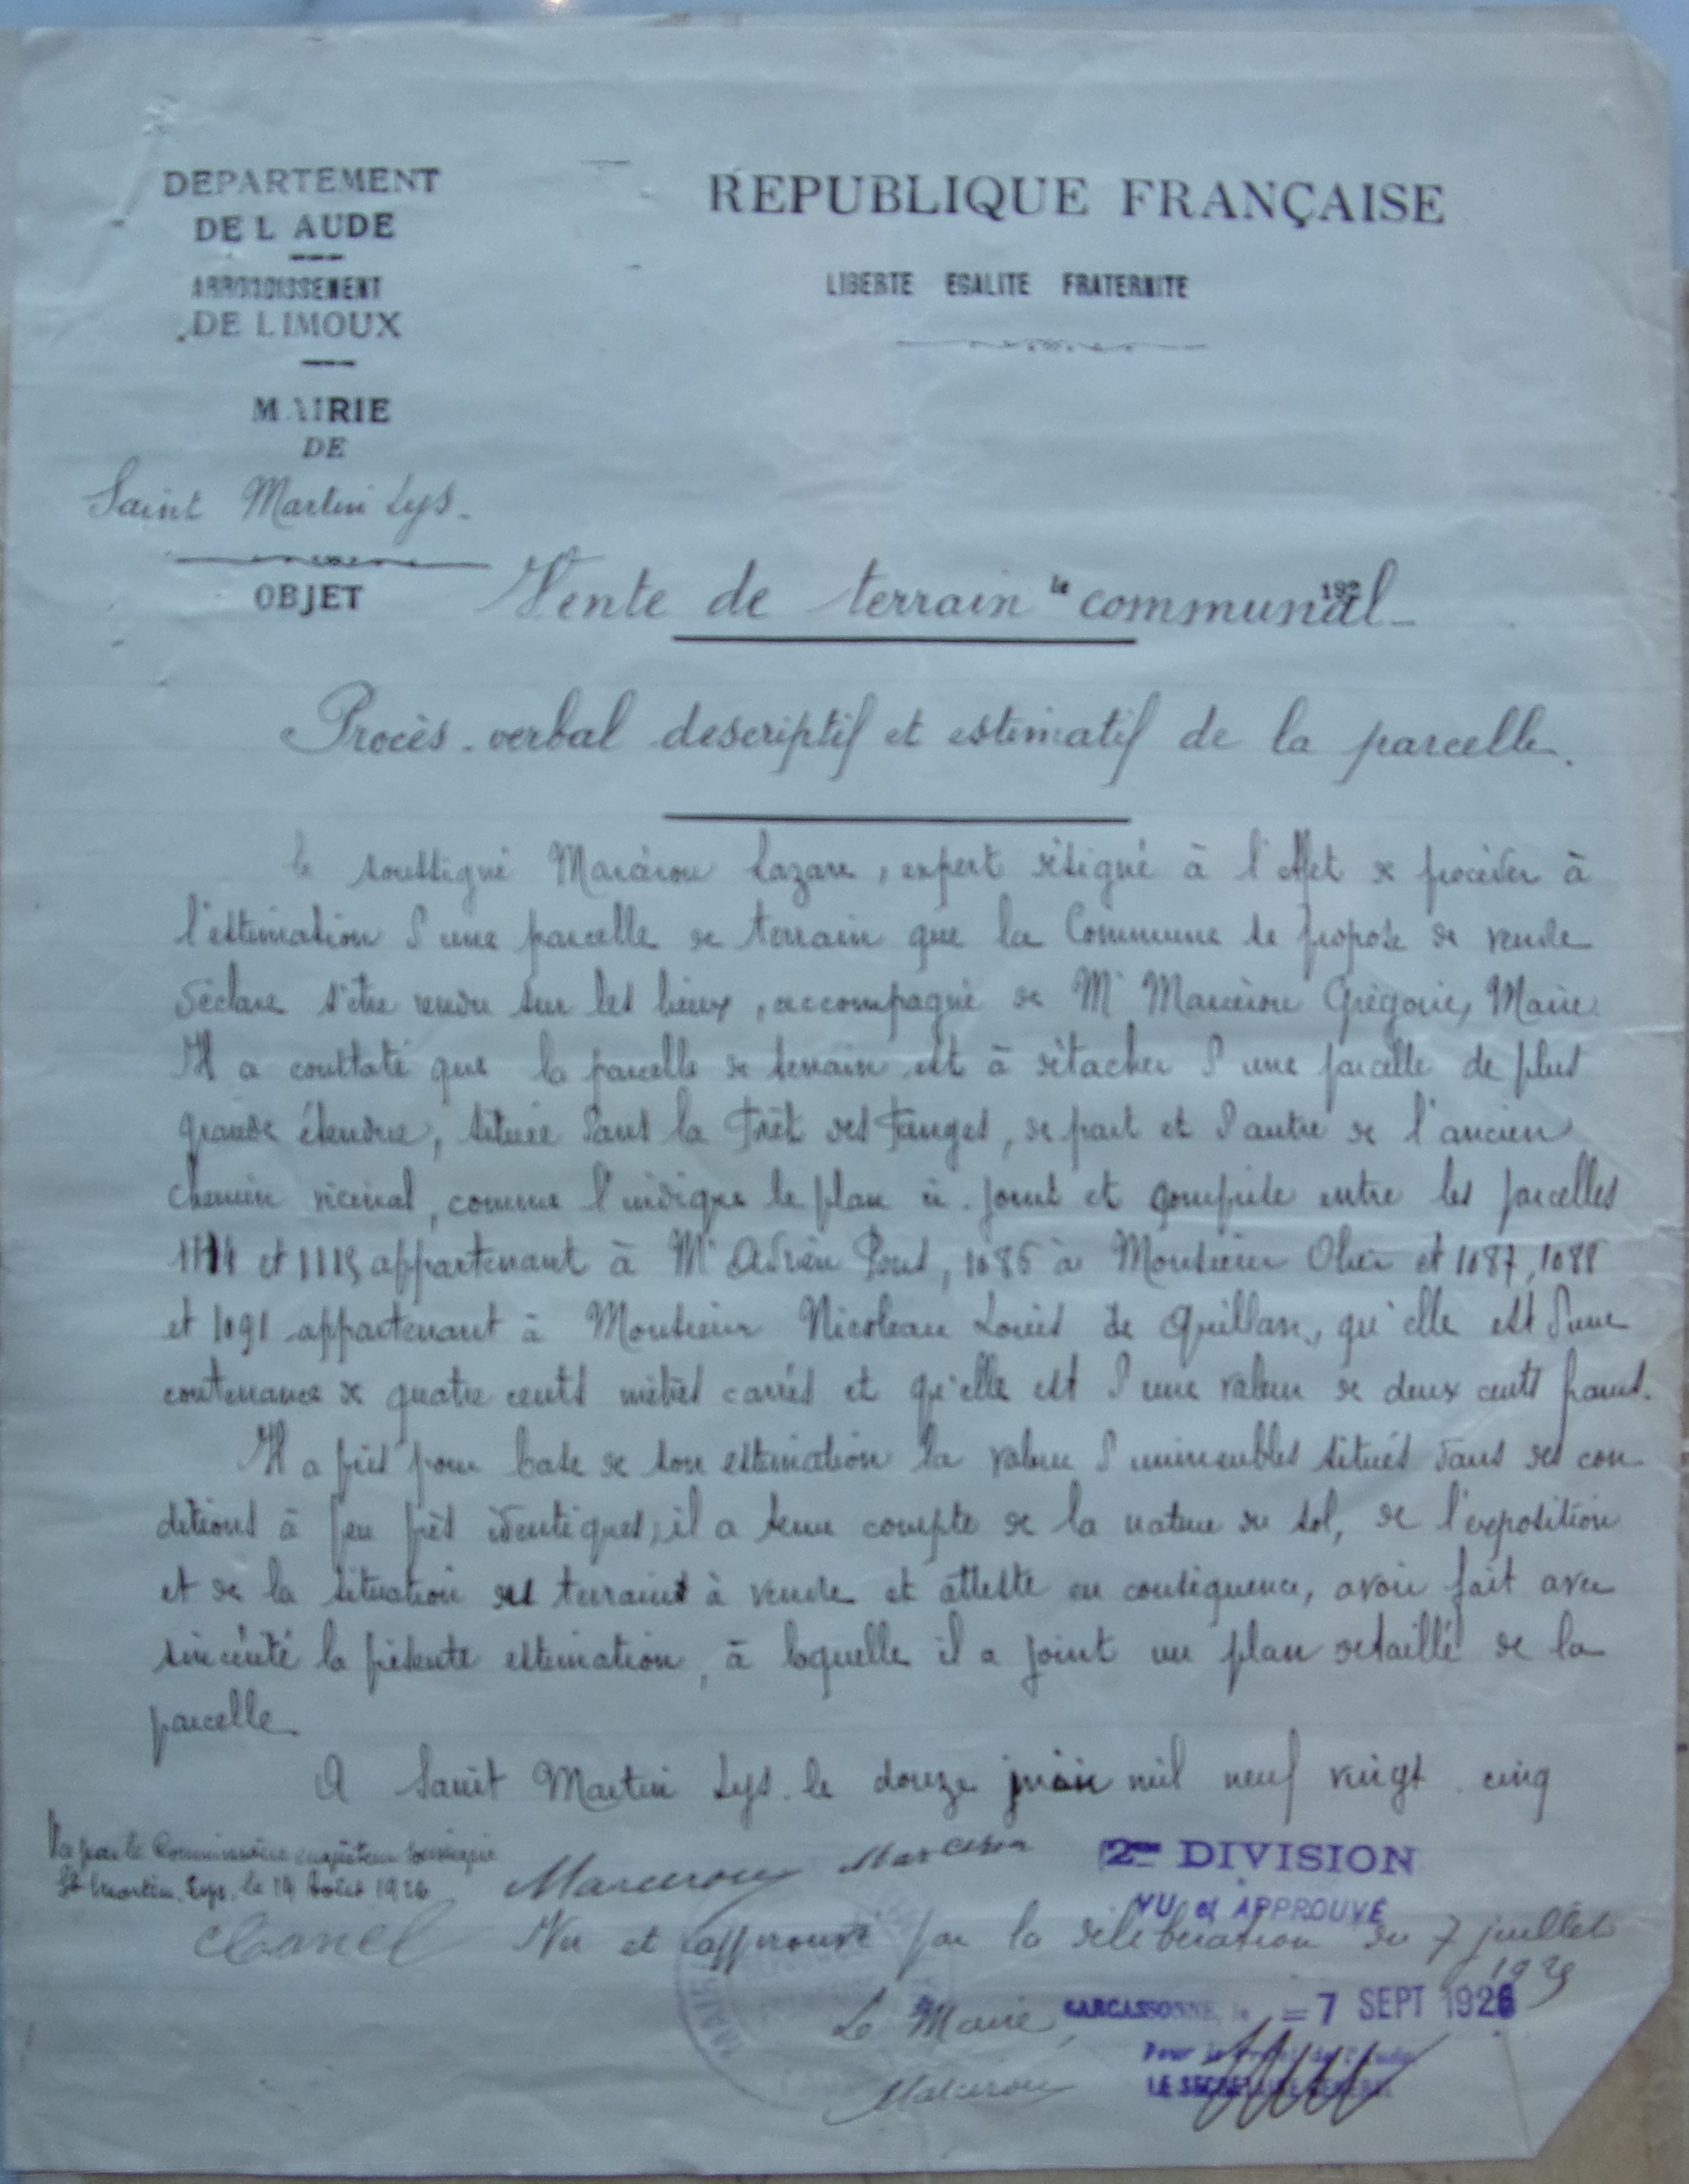 DEPARTEMENT
DE L AUDE
ARRONDISSEMENT
DE LIMOUX
MAIRIE
DE
Saint Martin Lys
REPUBLIQUE FRANÇAISE
LIBERTE EGALITE FRATERNITE
OBJET Vente de terrain le communal 192
Procès-verbal descriptif et estimatif de la parcelle.
le soussigné Marcérou Lazare, expert désigné à l'effet de procéder à
l'estimation d'une parcelle de terrain que la Commune se propose de vendre
déclare s'être rendu sur les lieux, accompagné de Mr Marcérou Grégoire, Maire.
Il a constaté que la parcelle de terrain est à détacher d'une parcelle de plus
grande étendue, située dans la Forêt des Fanges, de part et d'autre de l'ancien
chemin vicinal, comme l'indique le plan ci-joint et comprise entre les parcelles
1114 et 1115 appartenant à Mr Adrien Pous, 1086 à Monsieur et 1087, 1088
et 1091 appartenant à Monsieur Nicoleau Louis de Quillan, qu'elle est d'une
contenance de quatre cents mètres carrés et qu'elle est d'une valeur de deux cents francs.
Il a pris pour base de son estimation la valeur d'immeubles situés dans des con
ditions à peu près identiques; il a tenu compte de la nature du sol, de l'exposition
et de la situation des terrains à vendre et atteste en conséquence, avoir fait avec
sincérité la présente estimation, à laquelle il a joint un plan détaillé de la
parcelle.
A Saint Martin Lys le douze juin mil neuf vingt cinq
Vu par le Commissaire enquêteur soussigné
St Martin Lys, le 19 Août 1926
Marcerou Marcérou
2me DIVISION
VU et APPROUVÉ
Vu et approuvé par la délibération du 7 juillet
1925
Le Maire,
CARCASSONNE, le = 7 SEPT 1926
Pour le Préfet de l'Aude
LE SECRETAIRE GENERAL
Marcerou
MAIRIE